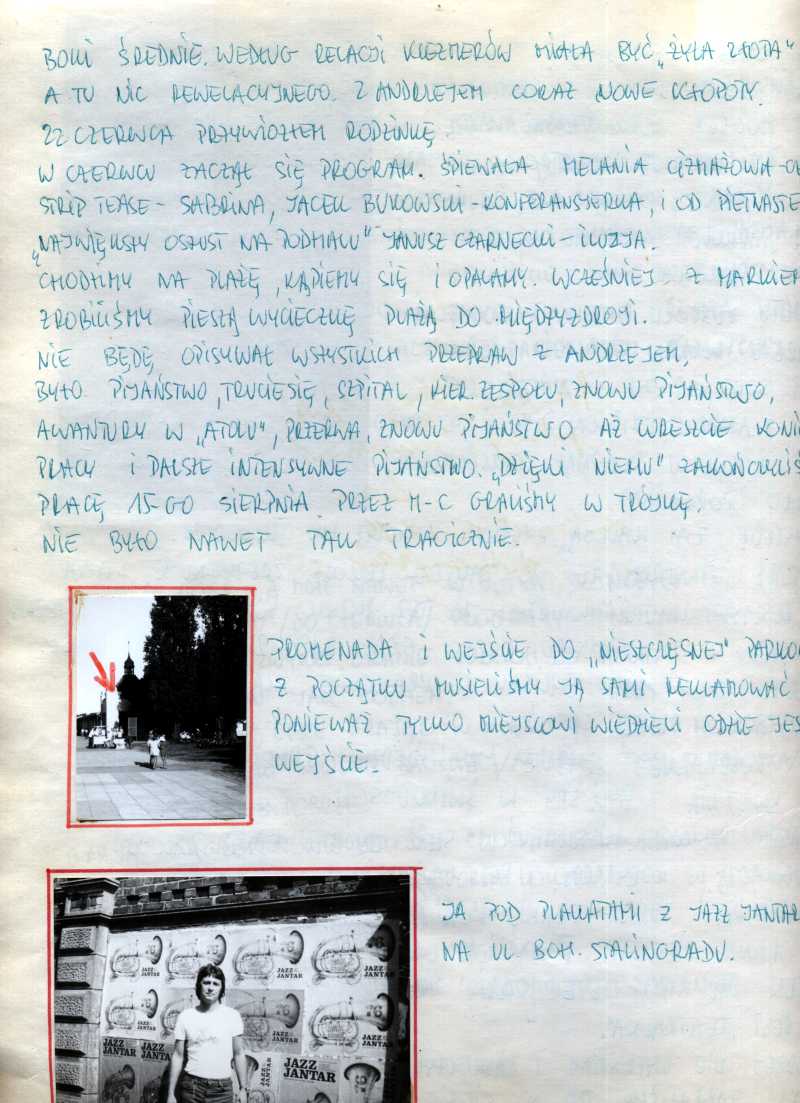 BOKI ŚREDNIE. WEDŁUG RELACJI KLEZMERÓW MIAŁA BYĆ „ŻYŁA ZŁOTA"
A TU NIC REWELACYJNEGO. Z ANDRZEJEM CORAZ NOWE KŁOPOTY.
22 CZERWCA PRZYWIOZŁEM RODZINKĘ.
W CZERWCU ZACZĄŁ SIĘ PROGRAM. ŚPIEWAŁA MELANIA
STRIP TEASE - SABRINA, JACEK BUKOWSKI - KONFERANSJERKA, I OD
„NAJWIĘKSZY OSZUST NA PODHALU" JANUSZ CZARNECKI - ILUZJA.
CHODZIMY NA PLAŻĘ, KĄPIEMY SIĘ I OPALAMY. WCZEŚNIEJ Z MARKIEM
ZROBILIŚMY PIESZĄ WYCIECZKĘ PLAŻĄ DO MIĘDZYZDROJI.
NIE BĘDĘ OPISYWAŁ WSZYSTKICH PRZEPRAW Z ANDRZEJEM,
BYŁO PIJAŃSTWO, TRUCIE SIĘ, SZPITAL, KIER. ZESPOŁU, ZNOWU PIJAŃSTWO,
AWANTURY W „ATOLU", PRZERWA, ZNOWU PIJAŃSTWO AŻ WRESZCIE KONIE
PRACY I DALSZE INTENSYWNE PIJAŃSTWO. „DZIĘKI NIEMU" ZAKOŃCZYLIŚ
PRACĘ 15-GO SIERPNIA. PRZEZ M-C GRALIŚMY W TRÓJKĘ.
NIE BYŁO NAWET TAK TRAGICZNIE.
PROMENADA I WEJŚCIE DO „NIESZCZĘSNEJ" PARKO
Z POCZĄTKU MUSIELIŚMY JĄ SAMI REKLAMOWAĆ
PONIEWAŻ TYLKO MIEJSCOWI WIEDZIELI GDZIE JES
WEJŚCIE.
JA POD PLAKATAMI Z JAZZ JANTAR
NA UL BOH. STALINGRADU.
JAZZ JANTAR
JAZZ JANTAR
JAZZ JANTAR
JAZZ JANTAR
JAZZ JANTAR
JAZZ JANTAR
JAZZ JANTAR